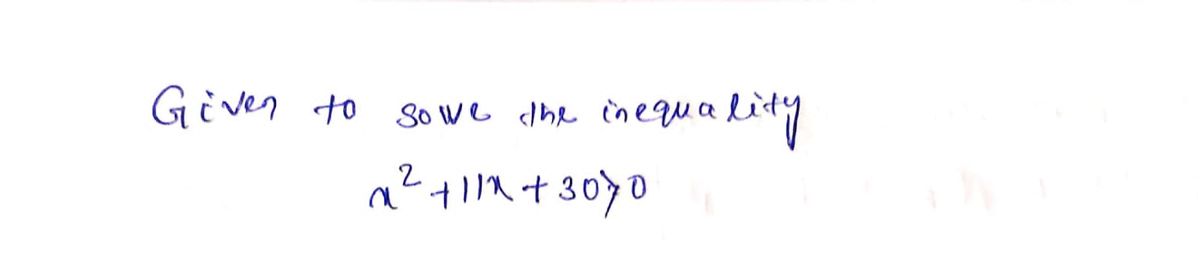 Given to solve the inequality
x² + 11x + 30 > 0